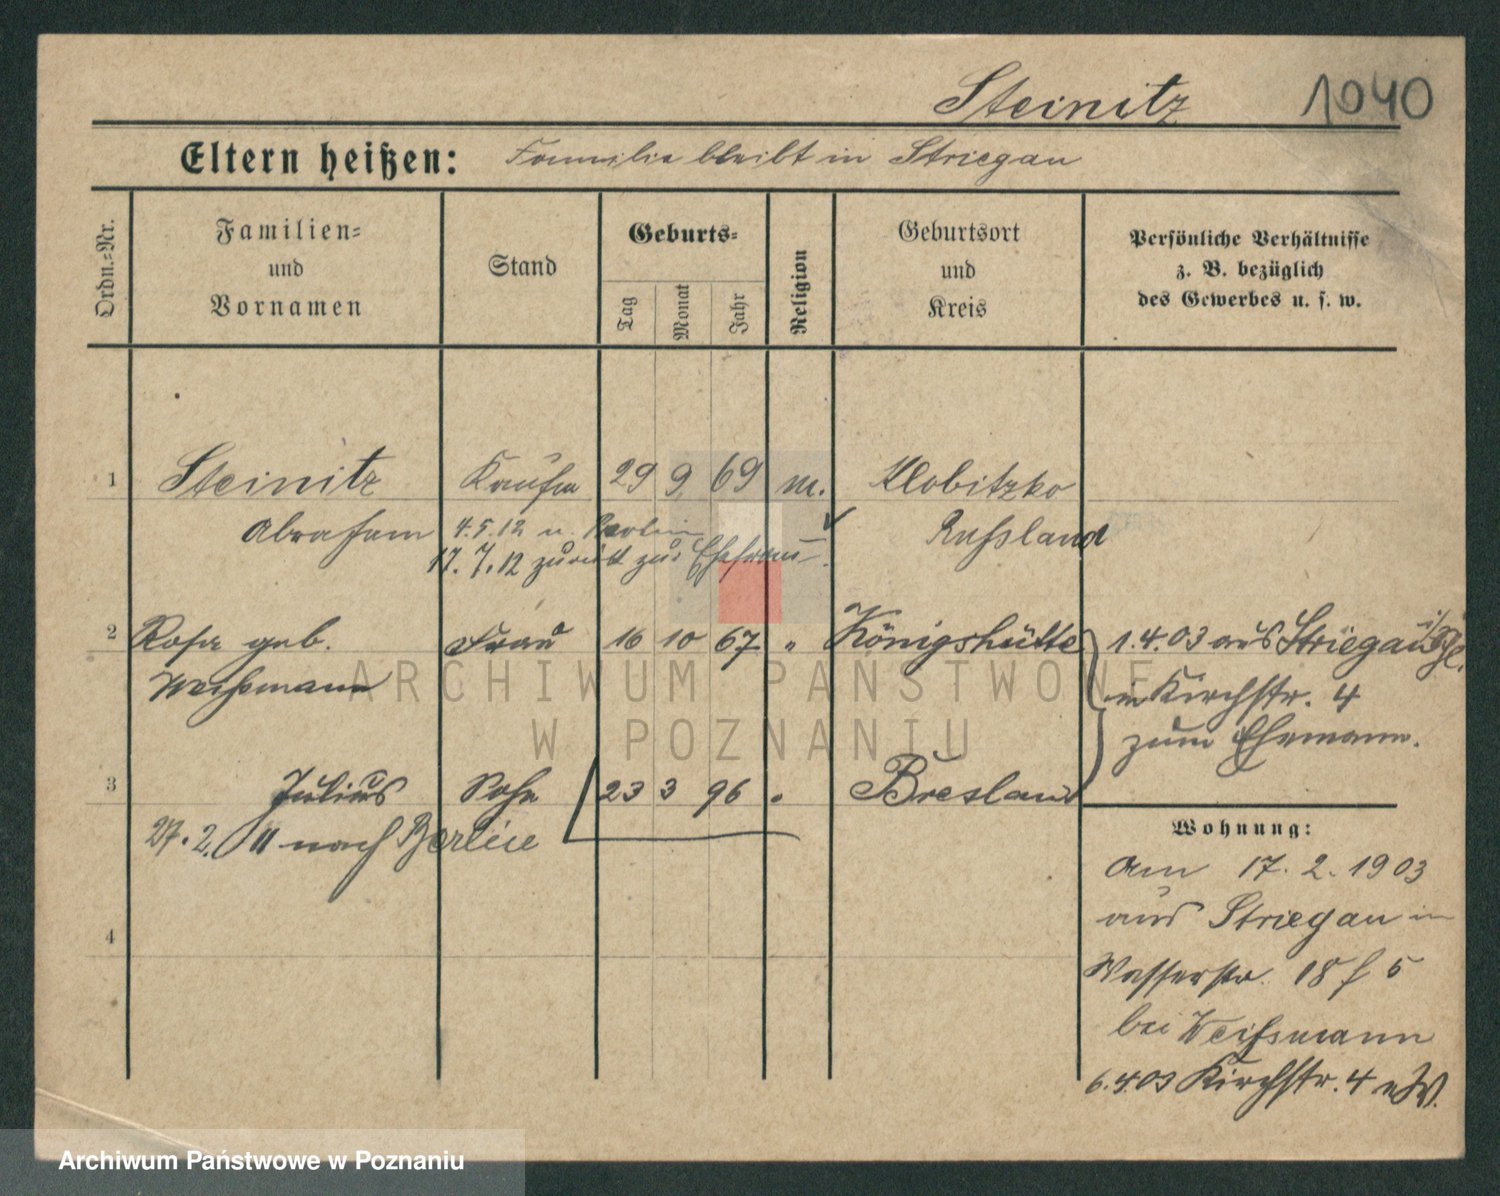 Steinitz 1040
Eltern heißen: Familie bleibt in Striegau
Ordn.=Nr.
Familien=
und
Vornamen
Stand
Geburts=
Tag Monat Jahr
Religion
Geburtsort
und
Kreis
Persönliche Verhältnisse
z. B. bezüglich
des Gewerbes u. s. w.
1 Steinitz Kaufm 29 9 69 m. Klobitzko
Abraham 4.5.12 n. Berlin Russland
17.7.12 zurück zur Ehefrau
2 Rosa geb. Frau 16 10 67 " Königshütte 1.4.03 aus Striegau
Weihsmann in Kirchstr. 4
zum Ehemann.
3 Julius Sohn 23 3 96 " Breslau
27.2.11 nach Berlin
4
Wohnung:
am 17.2.1903
aus Striegau in
Wasserstr. 18 f 5
bei Weihsmann
6.4.03 Kirchstr. 4 n.W.
ARCHIWUM PAŃSTWOWE
W POZNANIU
Archiwum Państwowe w Poznaniu